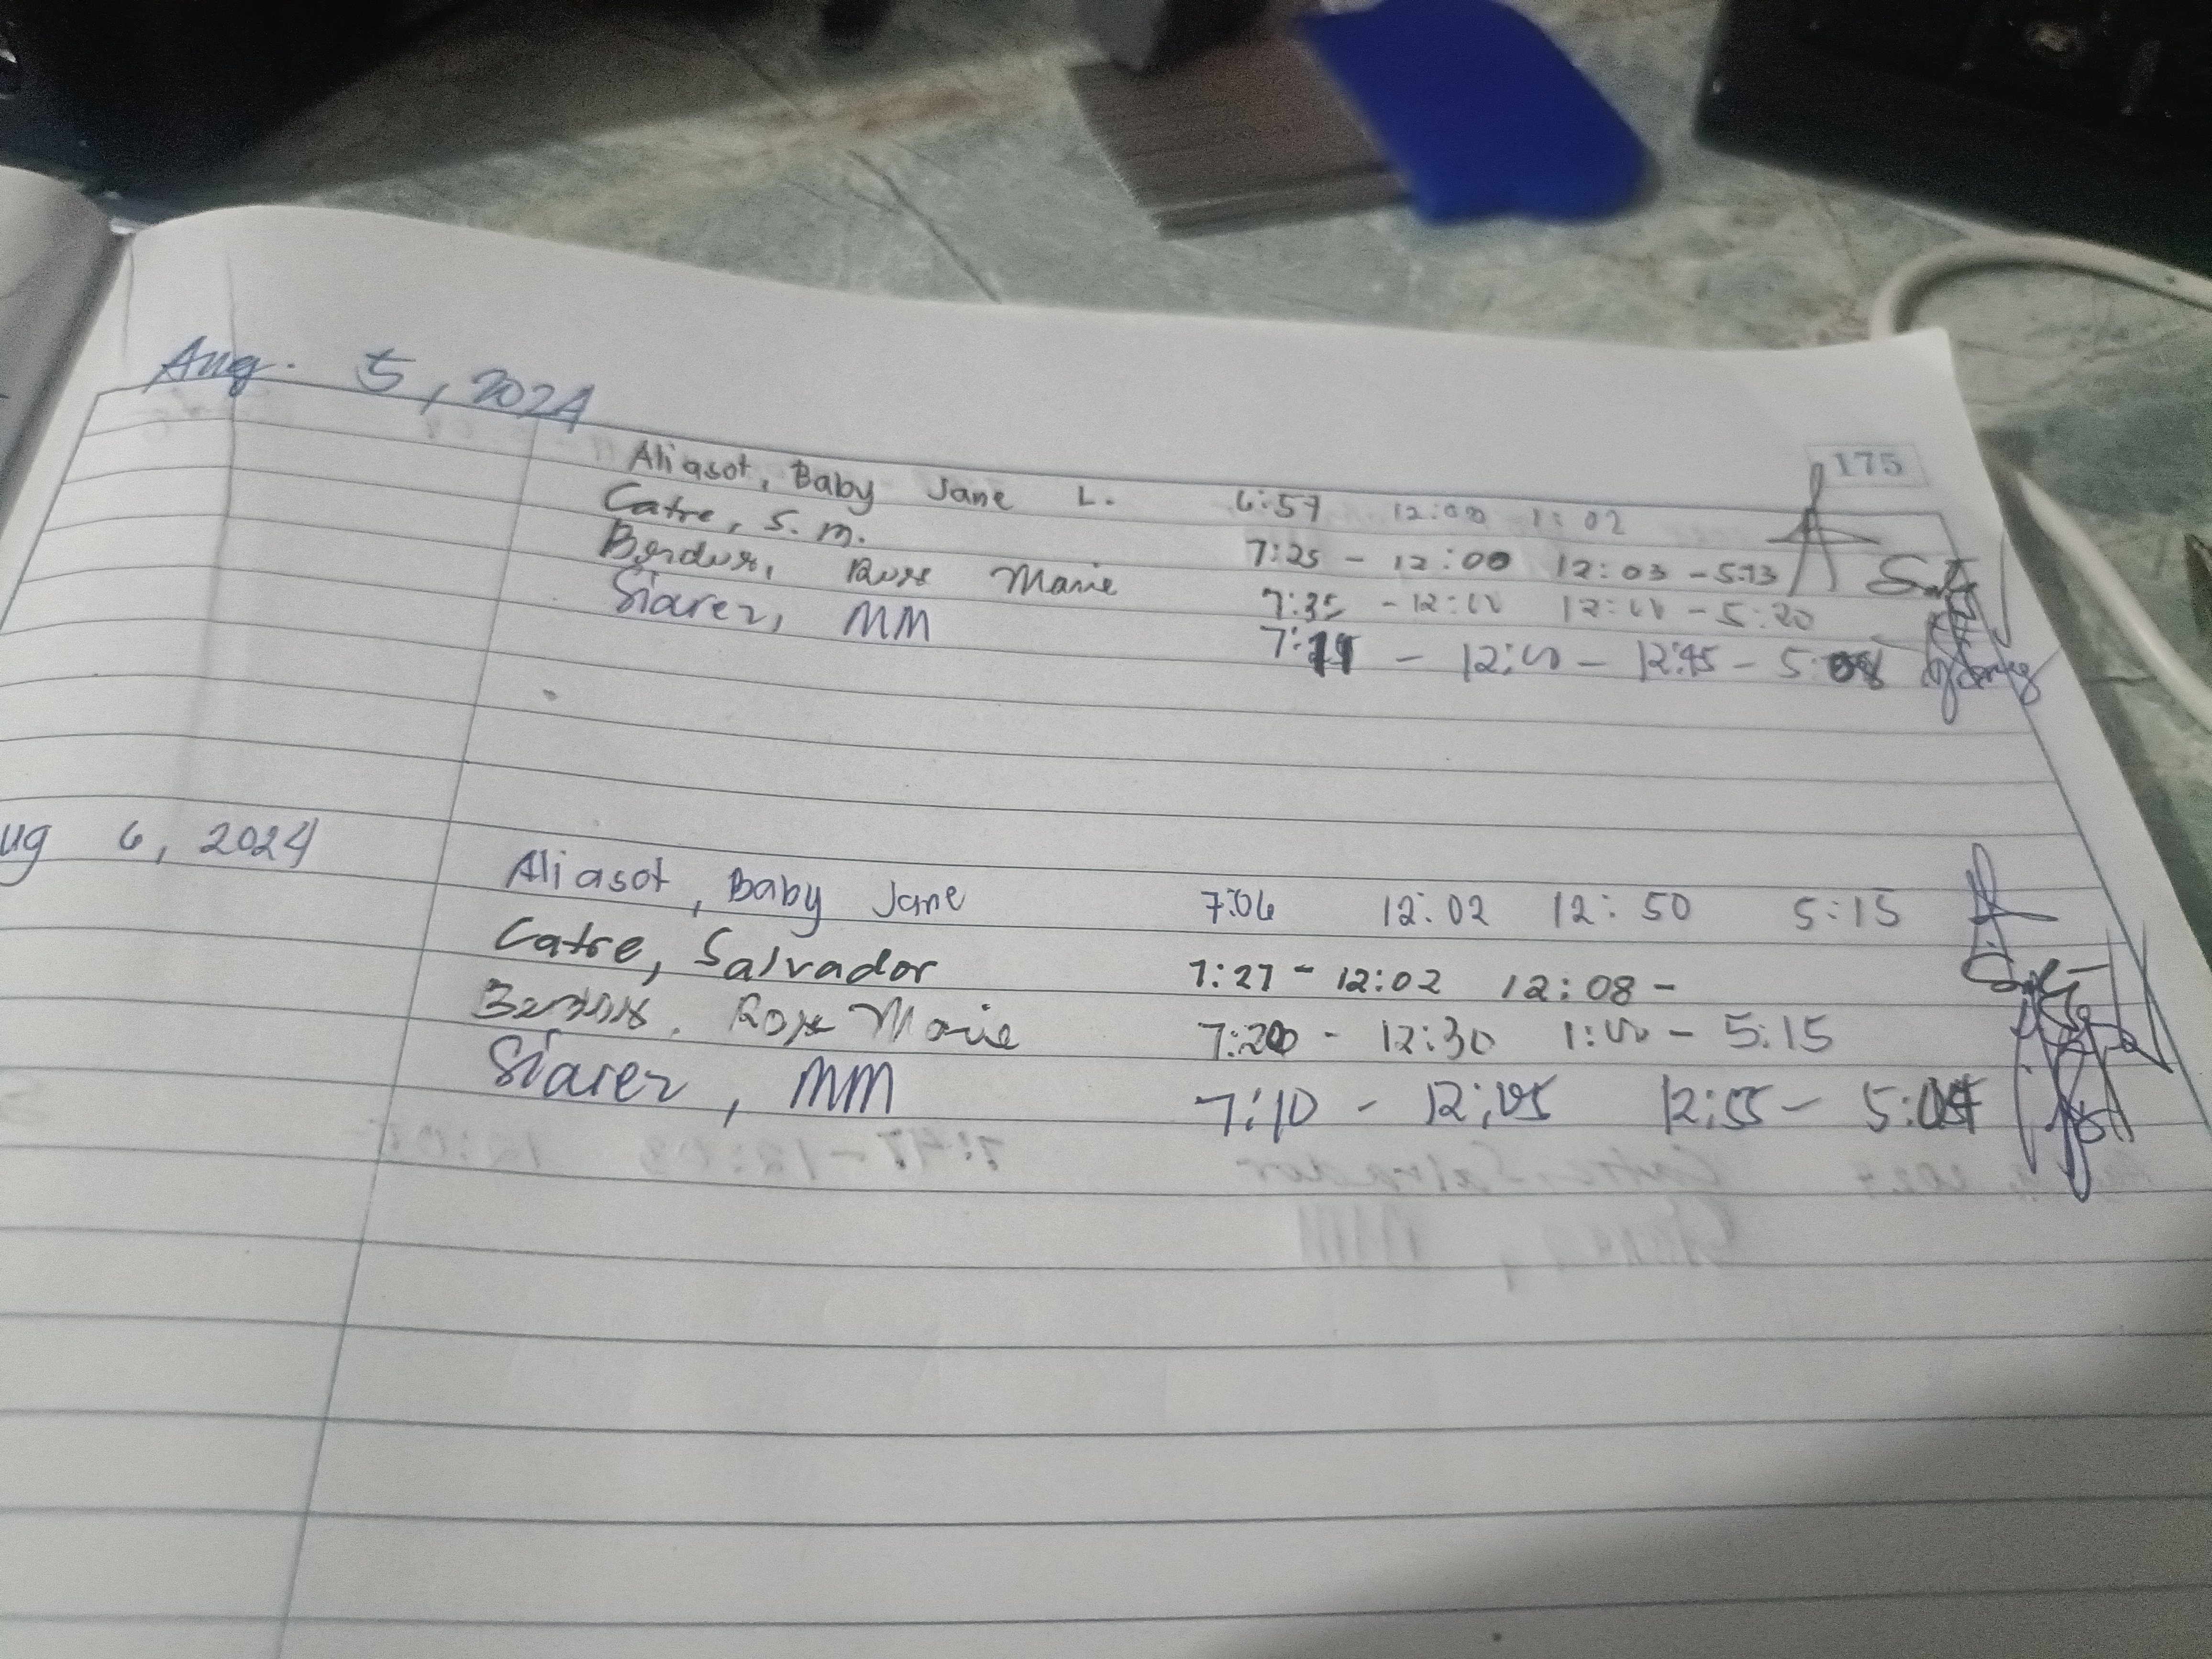 Aug. 5, 2024
175
Aliasot, Baby Jane L. 6:57 12:00 1:02
Catre, S. M. 7:25 - 12:00 12:03 - 5:13
Rose Marie 7:35 - 12:00 12:00 - 5:20
Siarez, MM - 12:00 - 12:45 - 5:08
ug 6, 2024
Aliasot, Baby Jane 7:06 12:02 12:50 5:15
Catre, Salvador 7:27 - 12:02 12:08 -
Rose Marie 7:20 - 12:30 1:00 - 5:15
Siarez, MM 7:10 - 12:05 12:55 -